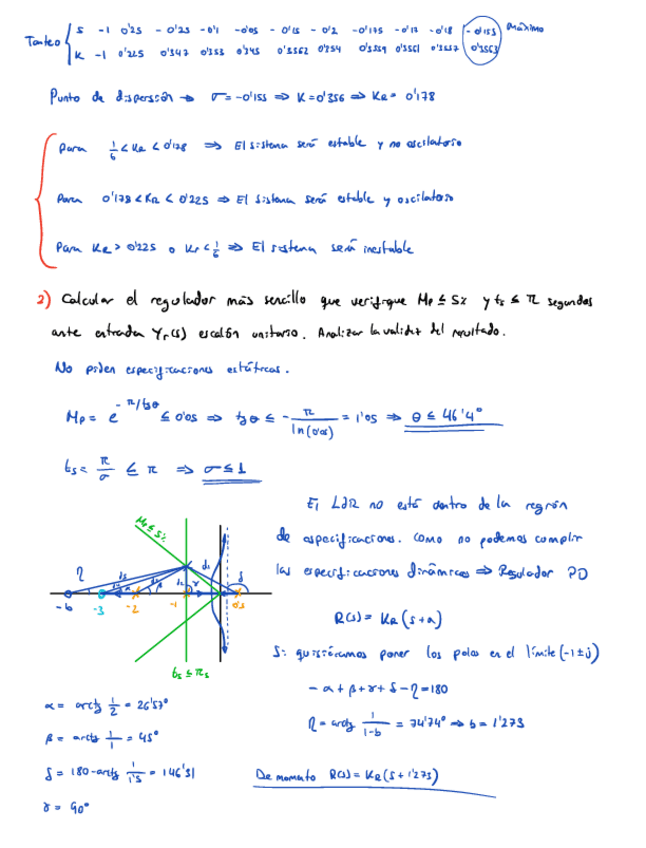 Tanteo { S -1 0'25 -0'25 -0'1 -0'05 -0'15 -0'2 -0'175 -0'17 -0'18 -0'155 máximo
K -1 0'225 0'347 0'353 0'345 0'3562 0'354 0'3559 0'3561 0'3557 0'3563
Punto de dispersión → σ = -0'155 ⇒ K = 0'356 ⇒ KR = 0'178
Para 1/6 < KR < 0'178 ⇒ El sistema será estable y no oscilatorio
Para 0'178 < KR < 0'225 ⇒ El sistema será estable y oscilatorio
Para KR > 0'225 o Kr < 1/6 ⇒ El sistema será inestable
2) Calcular el regulador más sencillo que verifique Mp ≤ 5% y ts ≤ π segundos
ante entrada Yr(s) escalón unitario. Analizar la validez del resultado.
No piden especificaciones estáticas.
Mp = e^(-π/tgθ) ≤ 0'05 ⇒ tgθ ≤ - π/ln(0'05) = 1'05 ⇒ θ ≤ 46'4°
ts = π/σ ≤ π ⇒ σ ≤ 1
Mp ≤ 5%
η
d1
γ
δ
-b -3 -2 -1 0'5
ts ≤ πs
El LDR no está dentro de la región
de especificaciones. Como no podemos cumplir
las especificaciones dinámicas ⇒ Regulador PD
R(s) = KR (s+a)
Si quisiéramos poner los polos en el límite (-1±j)
- α + β + γ + δ - η = 180
η = arctg 1/(1-b) = 74'74° ⇒ b = 1'273
α = arctg 1/2 = 26'57°
β = arctg 1/1 = 45°
δ = 180 - arctg 1/1'5 = 146'31
γ = 90°
De momento R(s) = KR (s + 1'273)